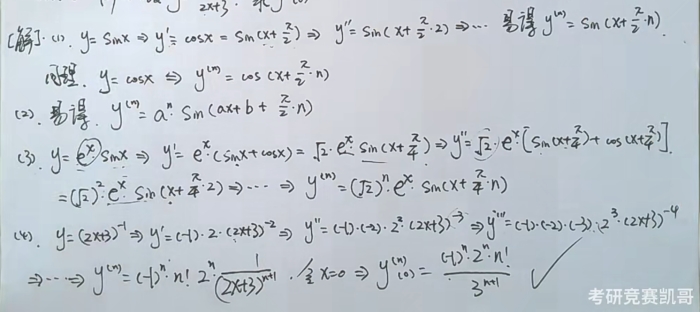 2x+3
[解]. (1). y = sinx ⇒ y' = cosx = sin(x+π/2) ⇒ y'' = sin(x+π/2·2) ⇒ ⋯ 易得 y⁽ⁿ⁾ = sin(x+π/2·n)
同理. y = cosx ⇔ y⁽ⁿ⁾ = cos(x+π/2·n)
(2). 易得. y⁽ⁿ⁾ = aⁿ·sin(ax+b+π/2·n)
(3) y = eˣ·sinx ⇒ y' = eˣ·(sinx+cosx) = √2·eˣ·sin(x+π/4) ⇒ y'' = √2·eˣ·[sin(x+π/4)+cos(x+π/4)]
= (√2)²·eˣ·sin(x+π/4·2) ⇒ ⋯ ⇒ y⁽ⁿ⁾ = (√2)ⁿ·eˣ·sin(x+π/4·n)
(4). y = (2x+3)⁻¹ ⇒ y' = (-1)·2·(2x+3)⁻² ⇒ y'' = (-1)·(-2)·2²·(2x+3)⁻³ ⇒ y''' = (-1)·(-2)·(-3)·2³·(2x+3)⁻⁴
⇒ ⋯ ⇒ y⁽ⁿ⁾ = (-1)ⁿ·n!·2ⁿ·1/(2x+3)ⁿ⁺¹. 令 x=0 ⇒ y⁽ⁿ⁾(0) = (-1)ⁿ·2ⁿ·n!/3ⁿ⁺¹ ✓
考研竞赛凯哥